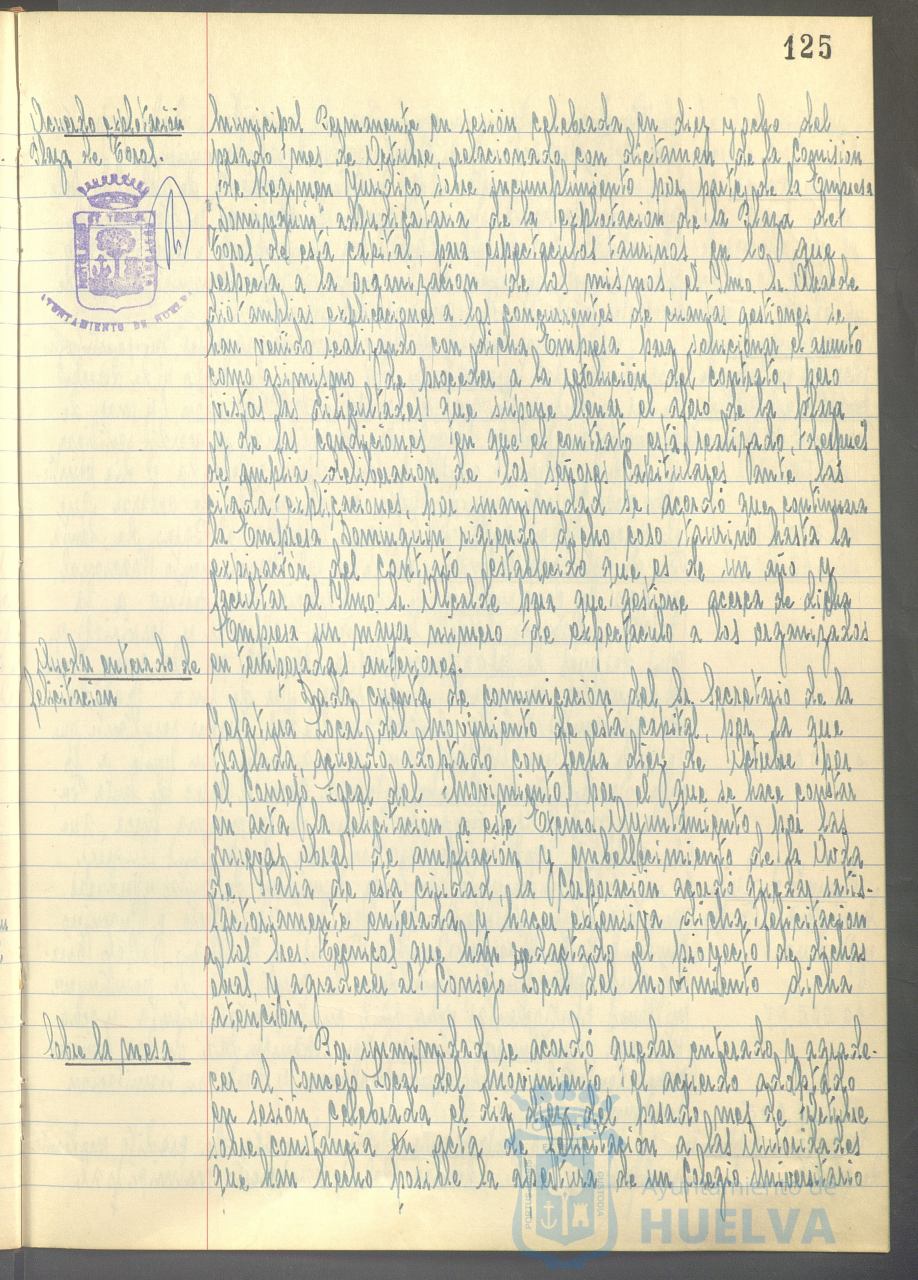 125
Acuerdo explotación
Plaza de Toros.
Municipal Permanente en sesión celebrada en diez y ocho del
pasado mes de Octubre, relacionado con dictamen de la Comisión
de Regimen Juridico sobre incumplimiento por parte de la Empresa
"Dominguin" adjudicataria de la explotación de la Plaza de
Toros de esta capital, para espectaculos taurinos, en lo que
respecta a la organización de los mismos, el Ilmo. Sr. Alcalde
dio amplias explicaciones a los concurrentes de cuantas gestiones se
han venido realizando con dicha Empresa para solucionar el asunto
como asimismo de proceder a la resolución del contrato, pero
vistas las dificultades que supone llenar el aforo de la plaza
y de las condiciones en que el contrato está realizado, despues
de amplia deliberación de los señores Capitulares ante las
citada explicaciones, por unanimidad se acordó que continuara
la Empresa Dominguin rigiendo dicho coso taurino hasta la
expiración del contrato establecido que es de un año y
facultar al Ilmo. Sr. Alcalde para que gestione acerca de dicha
Empresa un mayor número de espectaculo a los organizados
en temporadas anteriores.
Quedar enterado de
felicitacion
Dada cuenta de comunicación del Sr. Secretario de la
Jefatura Local del Movimiento de esta capital, por la que
traslada acuerdo adoptado con fecha diez de Octubre por
el Consejo Local del Movimiento, por el que se hace constar
en acta la felicitación a este Excmo. Ayuntamiento por las
nuevas obras de ampliación y embellecimiento de la Avda
de Italia de esta ciudad, la Corporación acordó quedar satis-
factoriamente enterada y hacer extensiva dicha felicitacion
a los Sres. Tecnicos que han redactado el proyecto de dichas
obras y agradecer al Consejo Local del Movimiento dicha
atención.
Sobre la mesa
Por unanimidad se acordó quedar enterado y agrade-
cer al Consejo Local del Movimiento el acuerdo adoptado
en sesión celebrada el dia diez del pasado mes de Octubre
sobre constancia en acta de felicitación a las Autoridades
que han hecho posible la apertura de un Colegio Universitario
AYUNTAMIENTO DE HUELVA
Ayuntamiento de
HUELVA